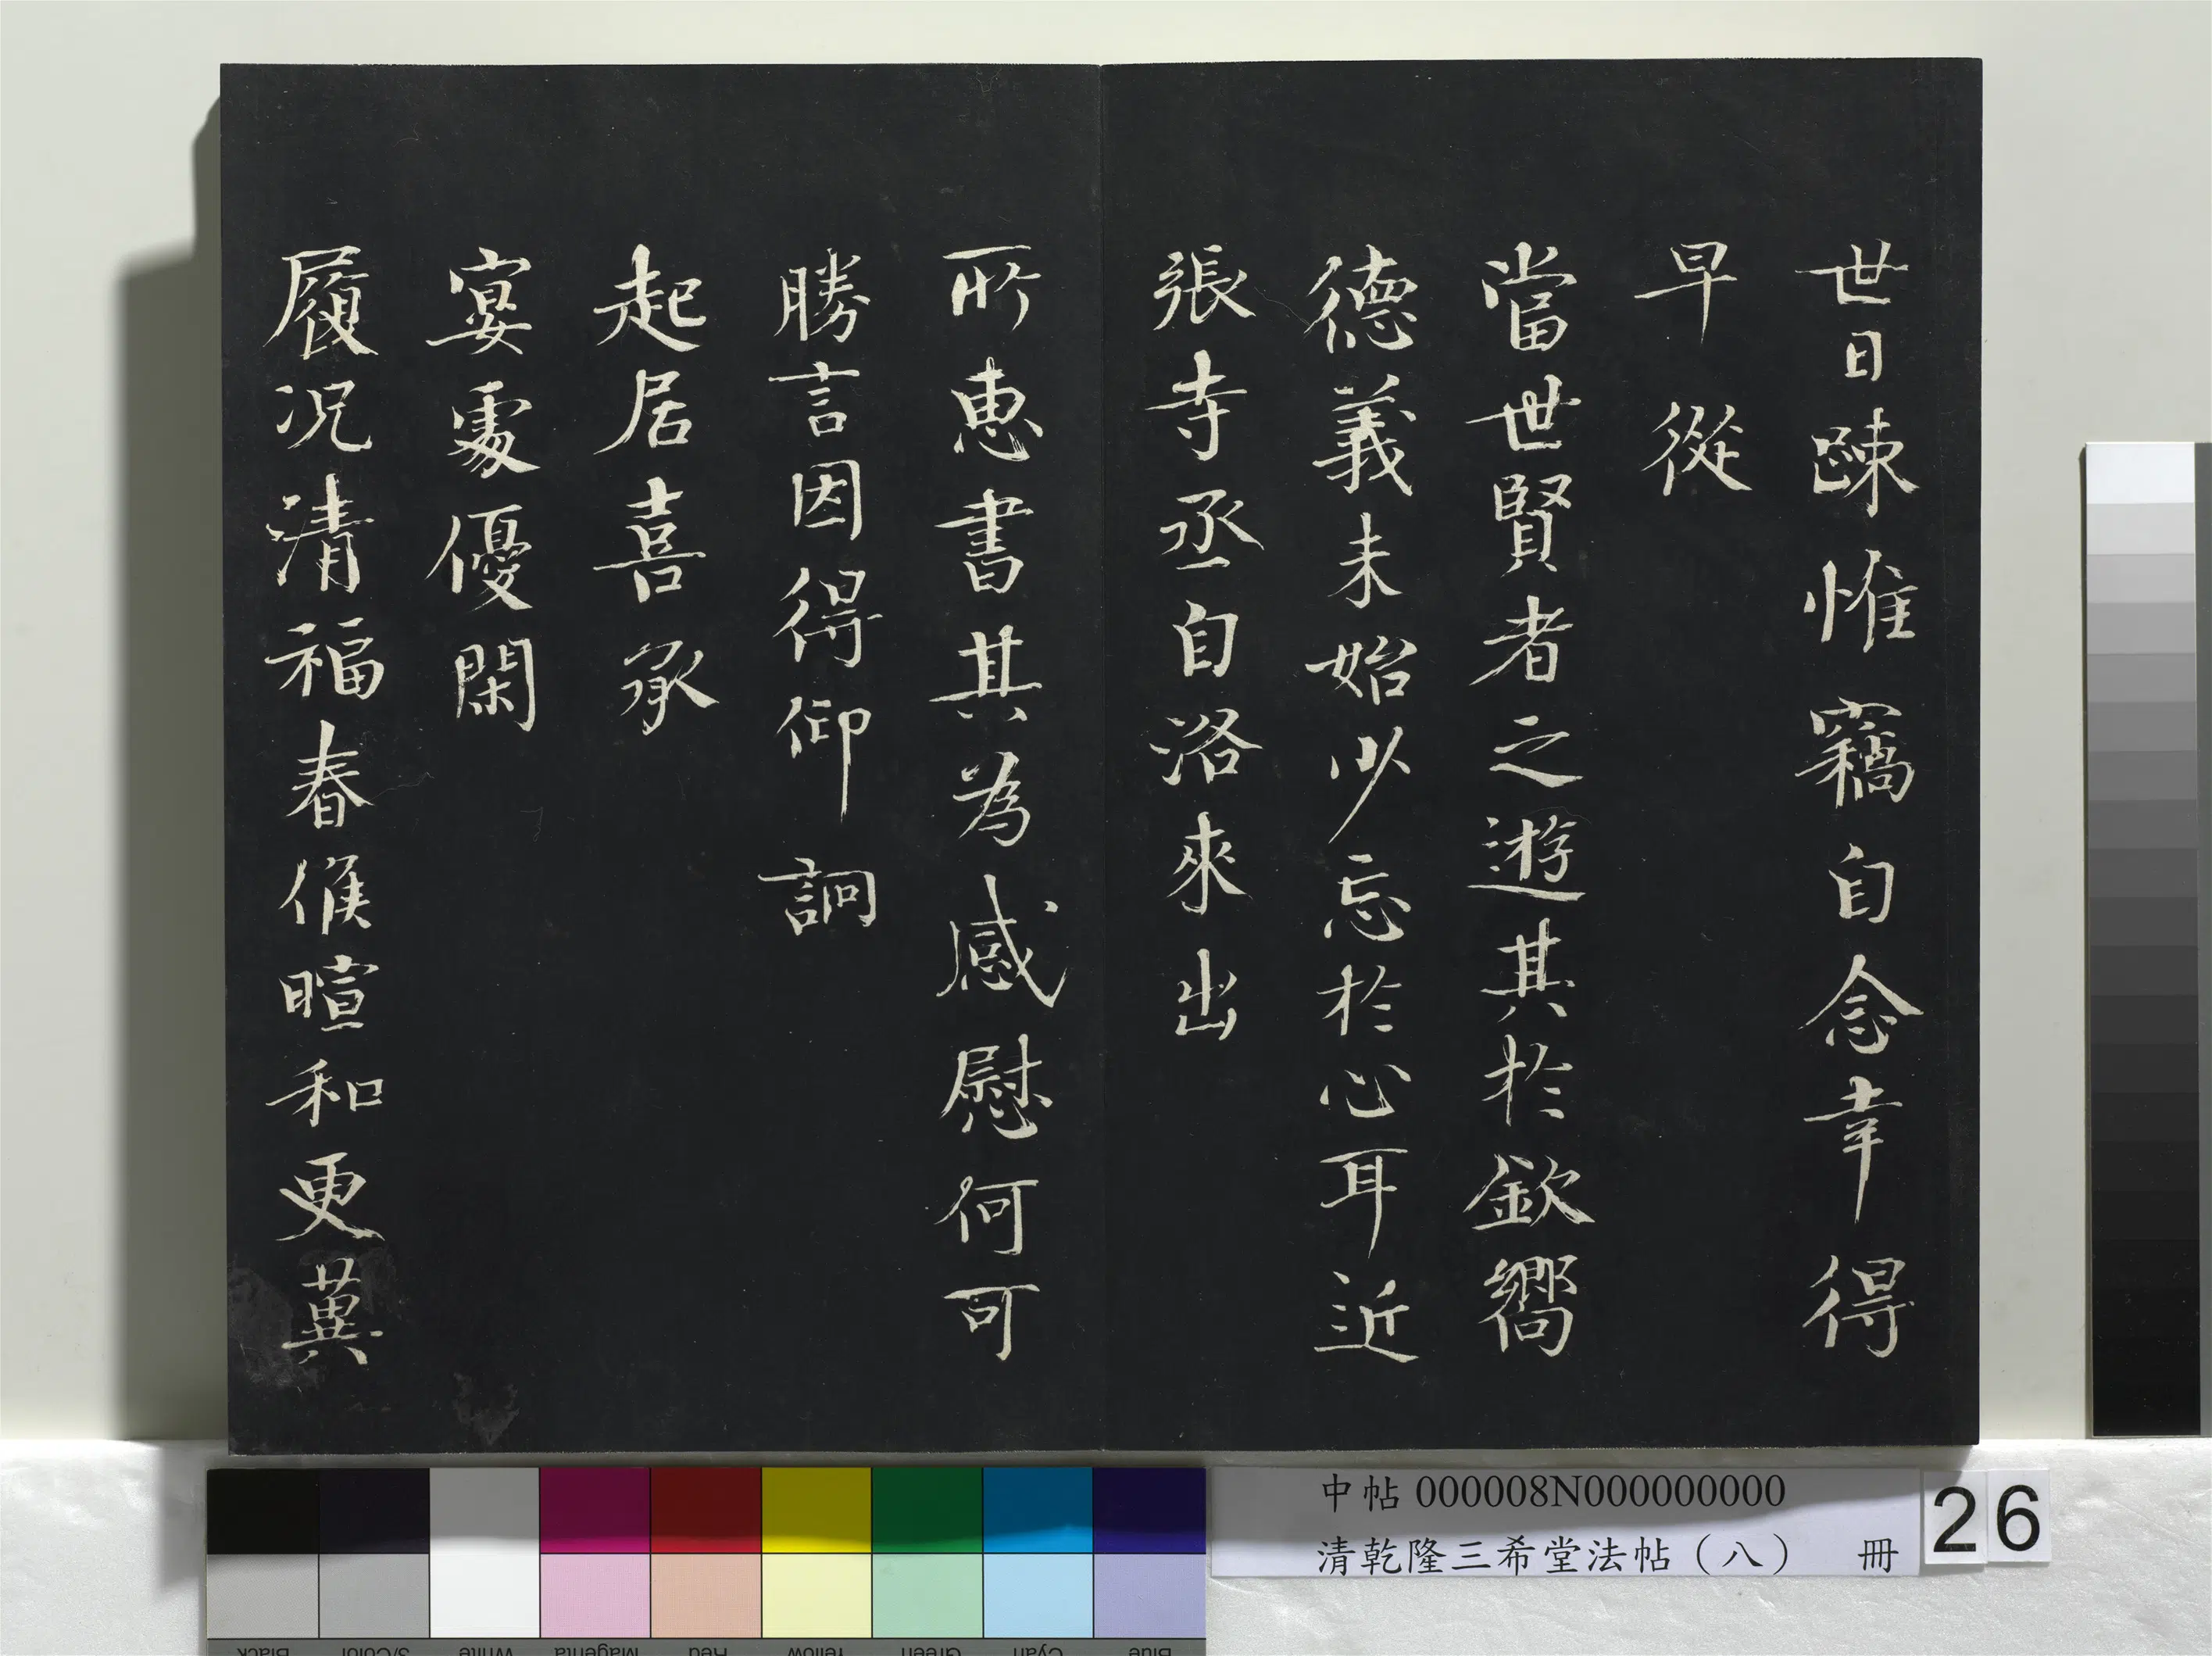 世日踈惟竊自念幸得
早從
當世賢者之遊其於欽嚮
德義未始少忘於心耳近
張寺丞自洛來出
所惠書其為感慰何可
勝言因得仰詗
起居喜承
宴處優閑
履況清福春候暄和更冀
中帖 000008N000000000
清乾隆三希堂法帖（八） 冊
26
Black
3/Color
White
Magenta
Red
Yellow
Green
Cyan
Blue